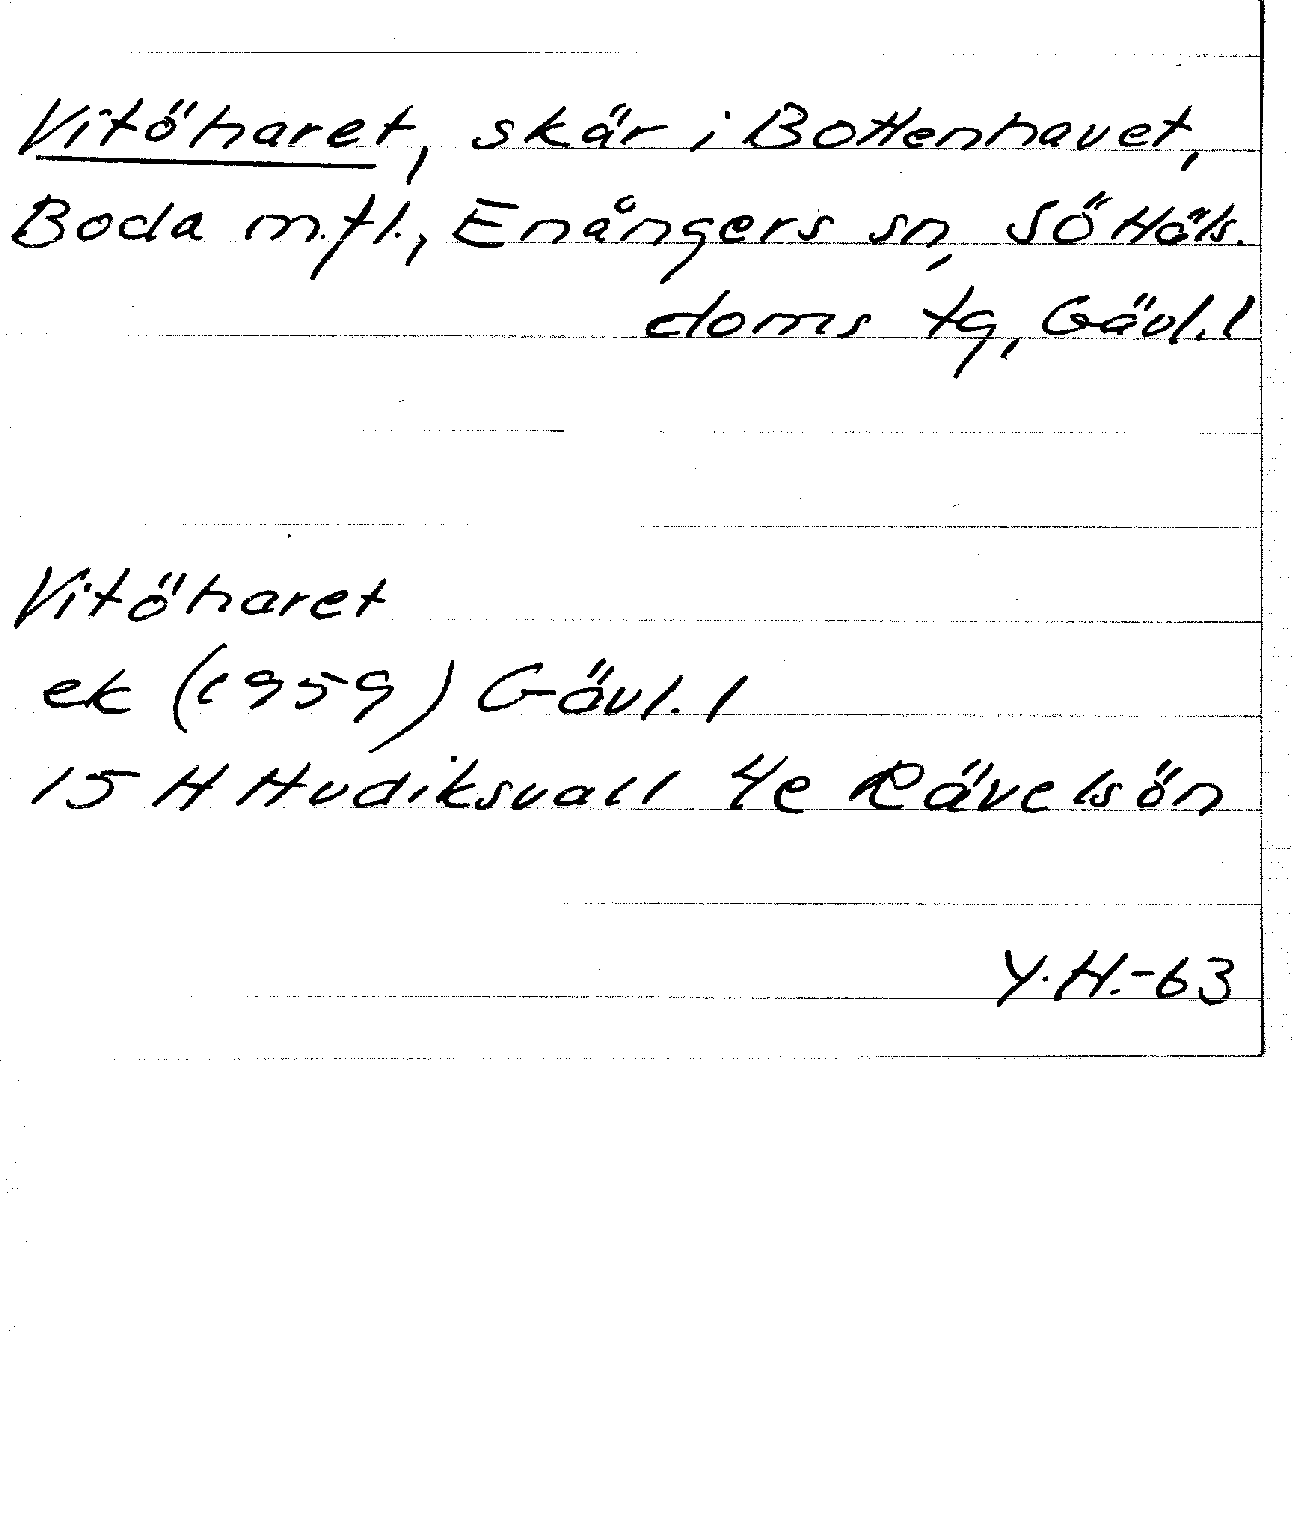 Vitöharet, skär i Bottenhavet,
Boda m.fl., Enångers sn, Sö Häls.
doms tg, Gävl. l
Vitöharet
ek (1959) Gävl. l
15 H Hudiksvall 4e Rävelsön
Y.H.-63